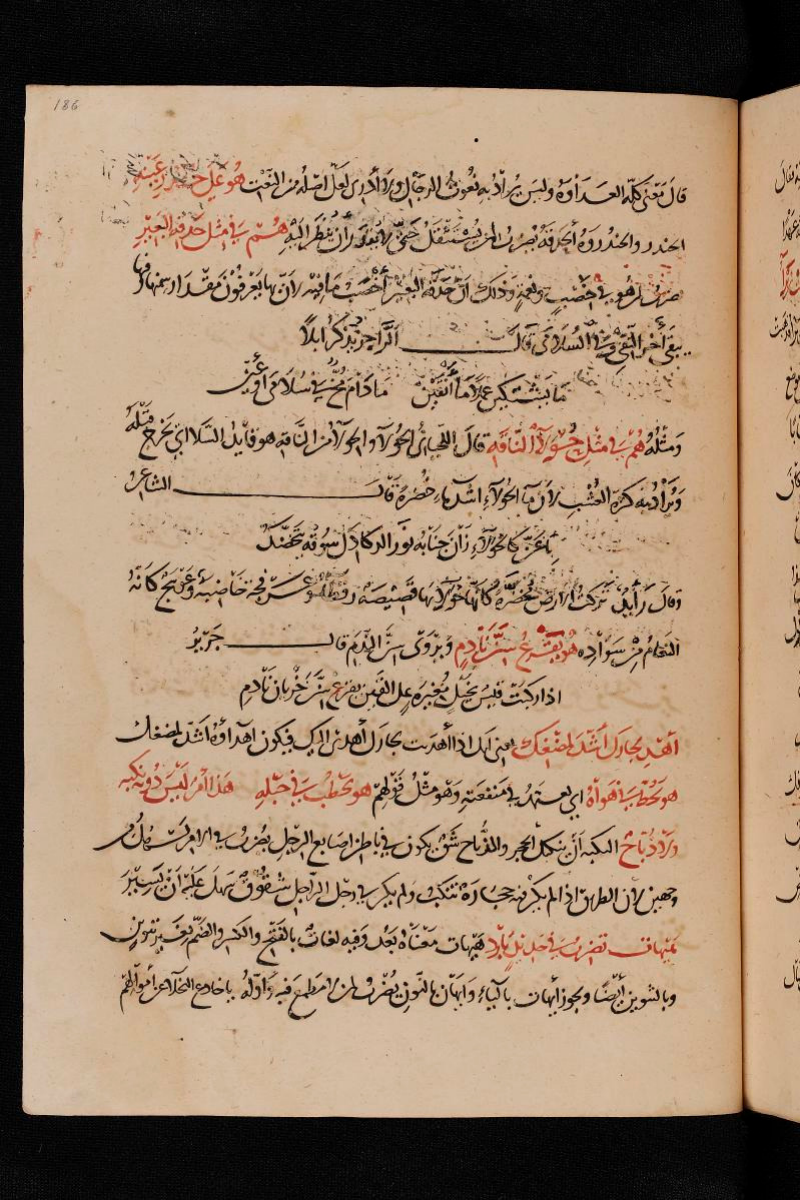 186
قال يعني كله العداوة وليس يراد به نعوت الرجال ولا أدري لعل اصله من النعت هو على حندر عينه
الحندر والحندورة الحدقة يضرب لمن يستثقل حتى لا يقدر أن ينظر اليه هم في مثل حدقة البعير
يضرب لمن هو في خصب ونعمة وذلك أن حدقة البعير أخصب ما فيه لأن بها يعرفون مقدار سمنها وفيها
يبقى آخر النقي وفي السلامى قال الراجز يذكر ابلا
ما يشتكين عملا ما أنقين ما دام مخ في سلامى او عين
ومثله هم في مثل حولاء الناقة قال اللحياني الحولاء والحولاء من الناقة هو قايد السلا اي يخرج قبله
ويراد به كثرة العشب لأن ماء الحولاء اشد ماء خضرة قال الشاعر
بأغن كالحولاء زان جنابه نور الدكادك سوقه تتخضد
وقال رايد تركت الأرض مخضرة كأنها حولاء بها قصيصة رقطاء وعرفجة خاضبة وعوسج كأنه
النعام من سواده هو يقرع سن نادم ويروى سن الندم قال جرير
اذا ركبت قيس بخيل مغيرة على القين يقرع سن خزيان نادم
اهد لجارك أشد لمضغك يعني انك اذا أهديت لجارك أهدى اليك فيكون اهداؤه اشد لمضغك
هو يحطب في هواه اي يعتمد في منفعته وهو مثل قولهم هو يحطب في حبله هذا امر ليس دونه نكبة
ولا ذباح النكبة أن ينكبك الحجر والذباح شق يكون في باطن اصابع الرجل يضرب في الامر يسهل من
وجهين لأن الطريق اذا لم يكن فيه حجارة تنكب ولم يكن في رجل الراجل شقوق سهل عليه أن يسير
هيهات تضرب في حديد بارد هيهات معناه بعد وفيه لغات بالفتح والكسر والضم بغير تنوين
وبالتنوين أيضا ويجوز أيهات بالياء وايهان بالنون يضرب لمن لا مطمع فيه واوله يا خادع البخلاء عن أموالهم